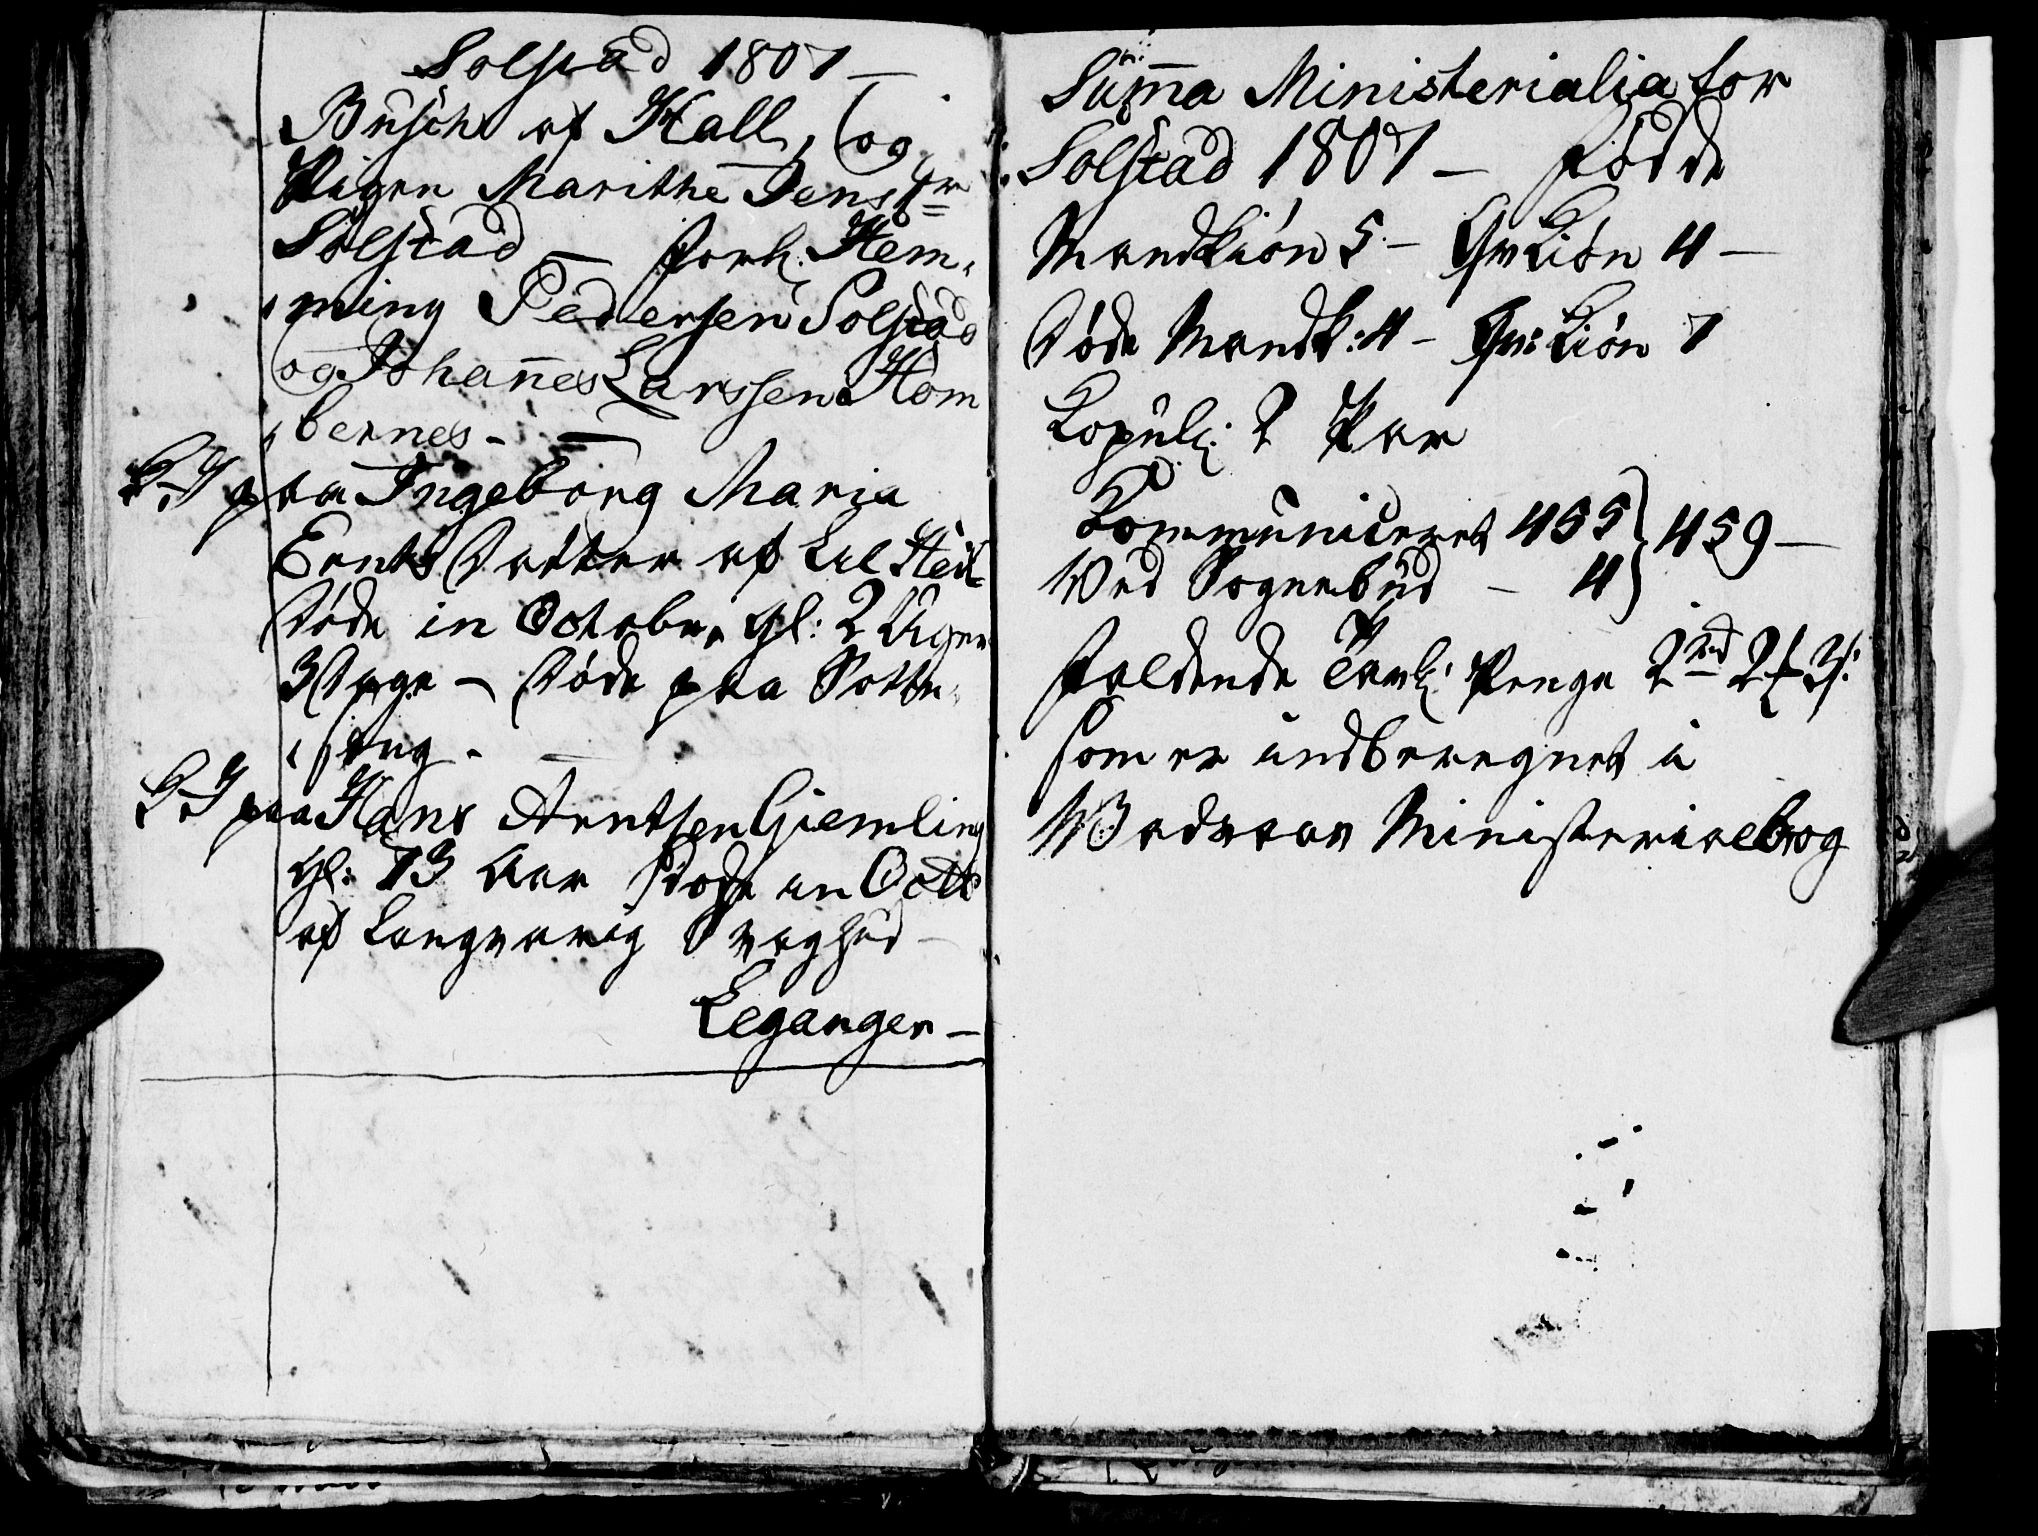 Solstad 1807 —
Busch af Hall, (og
Pigen Marithe Jensdr
Solstad — Forl: Hem-
ming Pedersen Solstad
og Johannes Larssen Hom
bernes. —
J. P. paa Ingeborg Maria
Ernts Datter af Lil
Døde in Octobr, gl: 2 Uger
3 Dage — Døde paa Sotte-
seng. —
J. P. paa Hans Arntsen Giemling
gl: 73 Aar Døde in Octb
af Langvarig Svaghed —
Leganger —
Summa Ministerialia for
Solstad 1807 — Fødde
Mandkiøn 5 — Qvkiøn 4 —
Døde Mandk: 4 — Qv: kiøn 7
Kopul: 2 Par
Kommuniceret 455 } 459 —
Ved Sognebud — 4 }
Faldende Penge 2rd 2 ₰ 3 s:
som er indberegnet i
Wadsøes Ministerialbog